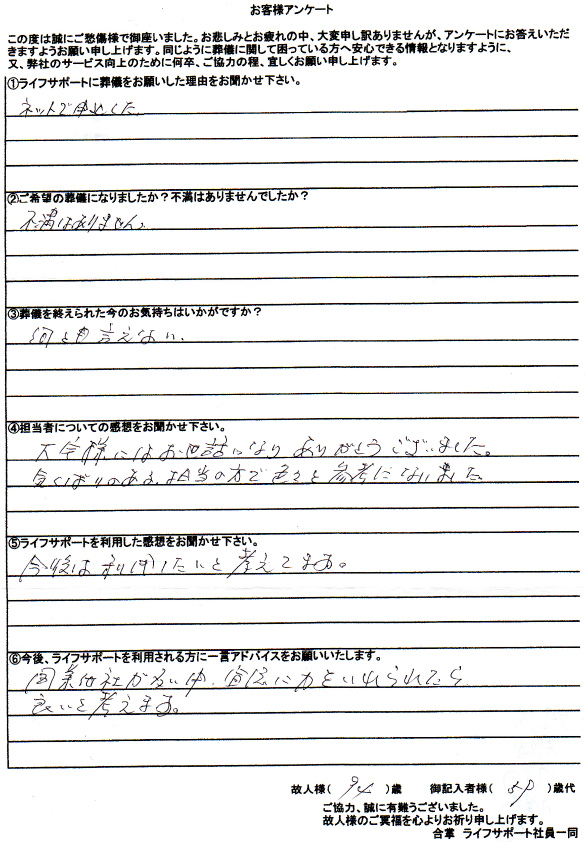 お客様アンケート
この度は誠にご愁傷様で御座いました。お悲しみとお疲れの中、大変申し訳ありませんが、アンケートにお答えいただ
きますようお願い申し上げます。同じように葬儀に関して困っている方へ安心できる情報となりますように、
又、弊社のサービス向上のために何卒、ご協力の程、宜しくお願い申し上げます。
①ライフサポートに葬儀をお願いした理由をお聞かせ下さい。
ネットで
②ご希望の葬儀になりましたか？不満はありませんでしたか？
不満はありません。
③葬儀を終えられた今のお気持ちはいかがですか？
何とも言えない。
④担当者についての感想をお聞かせ下さい。
様にはお世話になりありがとうございました。
気くばりのある担当の方で色々と参考になりました
⑤ライフサポートを利用した感想をお聞かせ下さい。
今後は利用したいと考えてます。
⑥今後、ライフサポートを利用される方に一言アドバイスをお願いいたします。
同業他社が多い中、宣伝に力をいれられたら
良いと考えます。
故人様( 94 )歳 御記入者様( 50 )歳代
ご協力、誠に有難うございました。
故人様のご冥福を心よりお祈り申し上げます。
合掌 ライフサポート社員一同